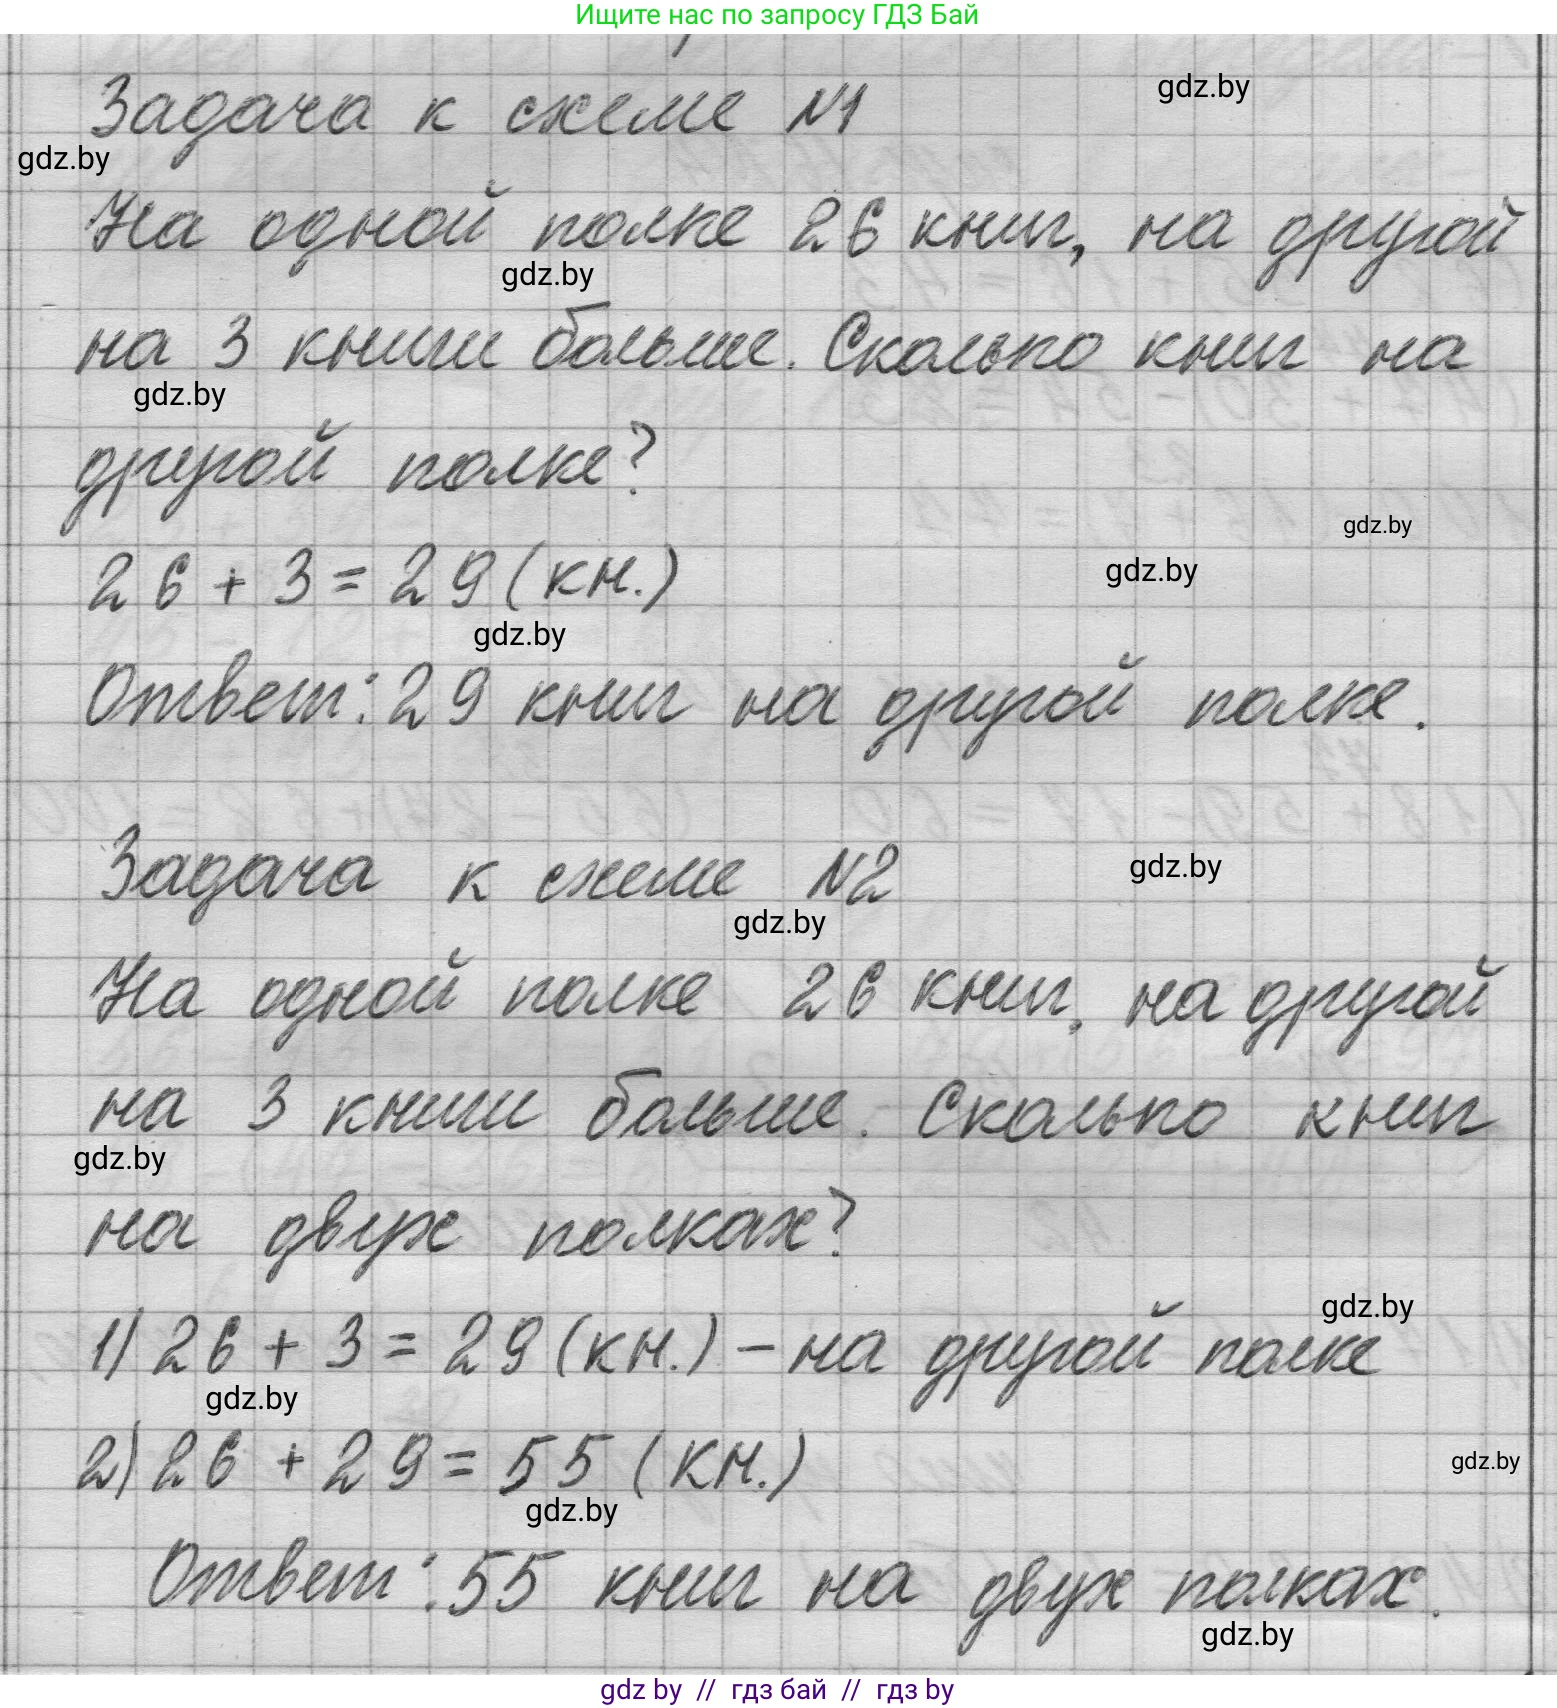 Ищите нас по запросу ГДЗ Бай
Задача к схеме №1
gdz.by
gdz.by
На одной полке 26 книг, на другой
gdz.by
на 3 книги больше. Сколько книг на
gdz.by
другой полке?
gdz.by
26 + 3 = 29 (кн.)
gdz.by
gdz.by
Ответ: 29 книг на другой полке.
Задача к схеме №2
gdz.by
gdz.by
На одной полке 26 книг, на другой
на 3 книги больше. Сколько книг
gdz.by
на двух полках?
gdz.by
1) 26 + 3 = 29 (кн.) - на другой полке
gdz.by
2) 26 + 29 = 55 (кн.)
gdz.by
gdz.by
Ответ: 55 книг на двух полках.
gdz.by
gdz by // гдз бай // gdz by